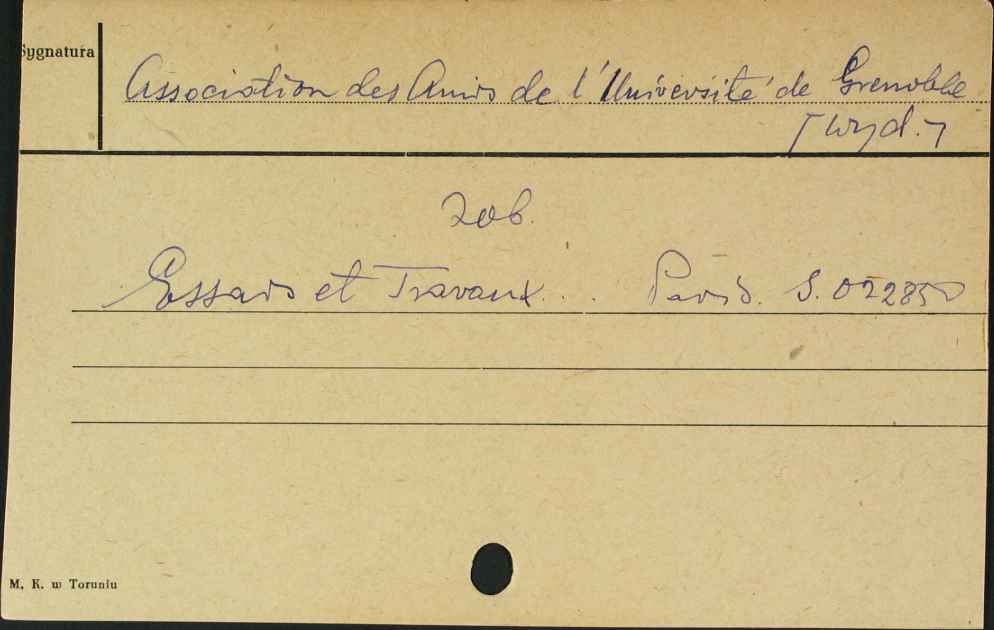 Sygnatura
Association des Amis de l'Université de Grenoble
[wyd.]
Zob.
Essais et Travaux... Paris. S. 022850
M. K. w Toruniu